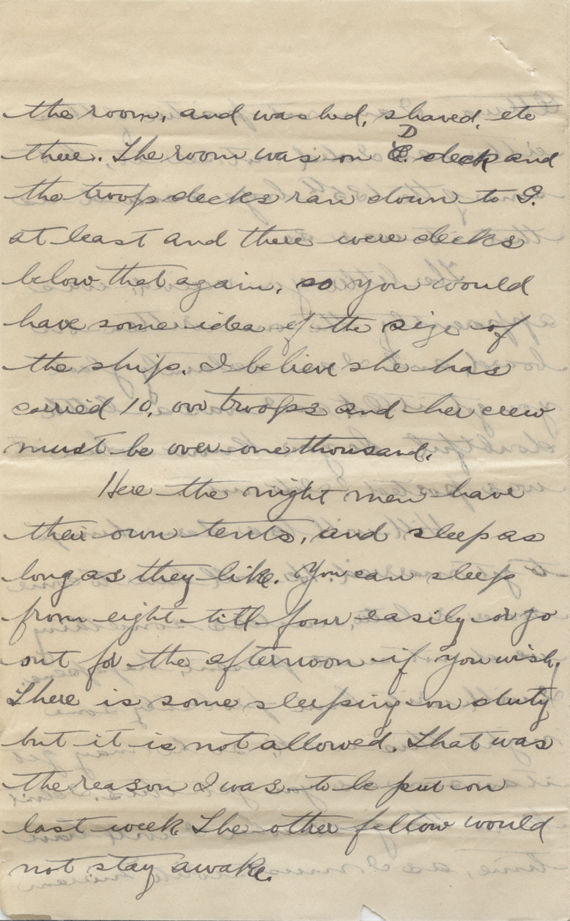 the room, and washed, shaved, etc
there. The room was on D deck and
the troop decks ran down to I.
at least and there were decks
below that again, so you would
have some idea of the size of
the ship. I believe she has
carried 10,000 troops and her crew
must be over one thousand.
Here the night men have
their own tents, and sleep as
long as they like. You can sleep
from eight till four easily or go
out for the afternoon if you wish.
There is some sleeping on duty
but it is not allowed. That was
the reason I was to be put on
last week The other fellow would
not stay awake.